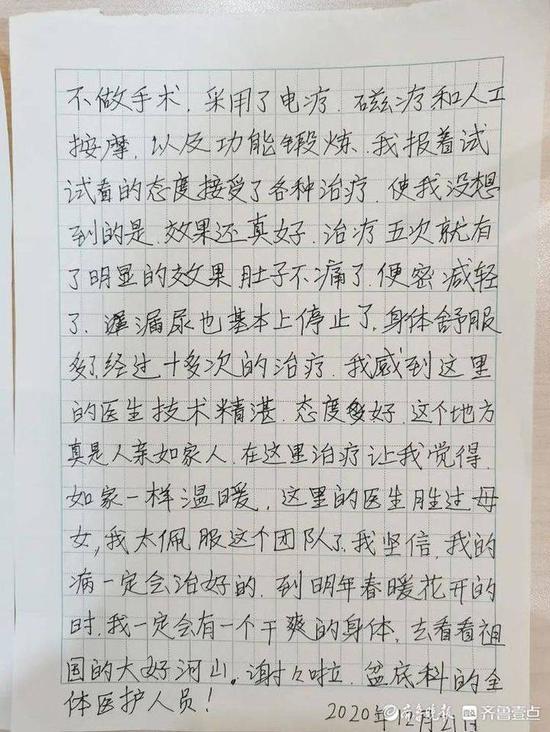 不做手术.采用了电疗.磁疗和人工
按摩.以及功能锻炼.我报着试
试看的态度接受了各种治疗.使我没想
到的是.效果还真好.治疗五次就有
了明显的效果肚子不痛了.便密减轻
了.漏尿也基本上停止了.身体舒服
多了.经过十多次的治疗.我感到这里
的医生技术精湛.态度多好.这个地方
真是人亲如家人.在这里治疗让我觉得.
如家一样温暖.这里的医生胜过母
女,我太佩服这个团队了.我坚信.我的
病一定会治好的.到明年春暖花开的
时.我一定会有一个干爽的身体.去看看祖
国的大好河山。谢々啦.盆底科的全
体医护人员!
2020年12月21日
齐鲁晚报 齐鲁壹点